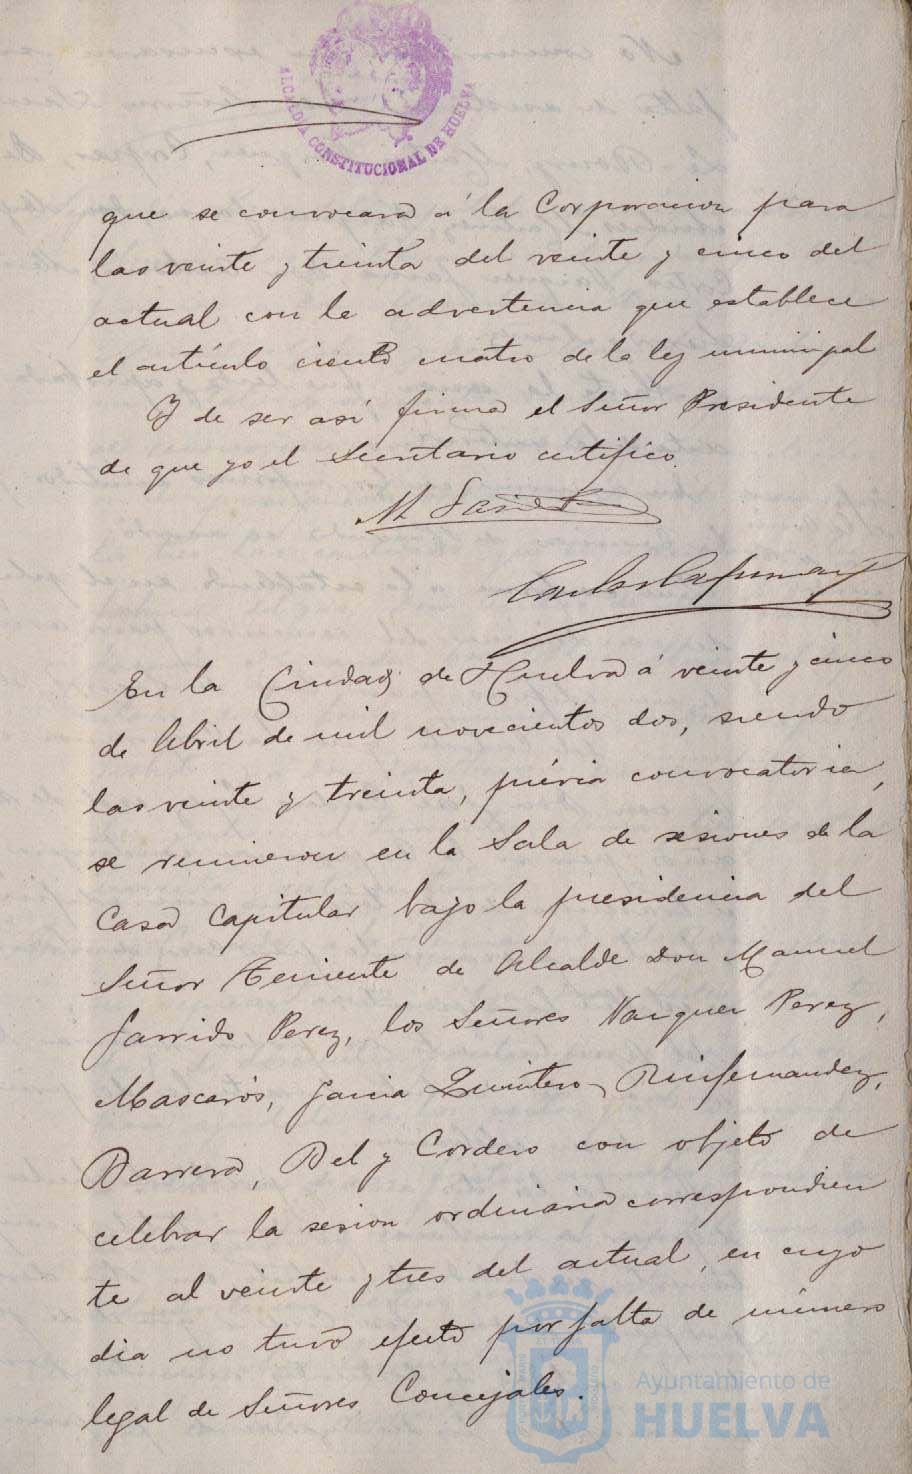 ALCALDIA CONSTITUCIONAL DE HUELVA
que se convocará á la Corporacion para
las veinte y treinta del veinte y cinco del
actual con la advertencia que establece
el artículo ciento cuatro de la ley municipal
Y de ser así firma el Señor Presidente
de que yo el Secretario certifico.
M
En la Ciudad de Huelva á veinte y cinco
de Abril de mil novecientos dos, siendo
las veinte y treinta, prévia convocatoria,
se reunieron en la Sala de sesiones de la
Casa Capitular bajo la presidencia del
Señor Teniente de Alcalde Don Manuel
Garrido Perez, los Señores Vazquez Perez,
Mascarós, Garcia Quintero, Ruifernandez,
Barrera, Bel y Cordero con objeto de
celebrar la sesion ordinaria correspondien
te al veinte y tres del actual, en cuyo
dia no tuvo efecto por falta de número
legal de Señores Concejales.
Ayuntamiento de
HUELVA